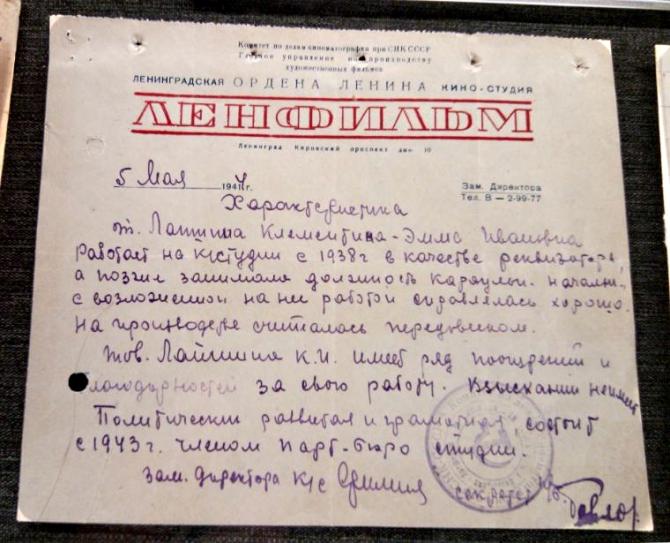 Комитет по делам кинематографии при СНК СССР
Главное управление по производству
художественных фильмов
ЛЕНИНГРАДСКАЯ ОРДЕНА ЛЕНИНА КИНО-СТУДИЯ
ЛЕНФИЛЬМ
Ленинград Кировский проспект дом 10
5 Мая 1944г.
Зам. Директора
Тел. В — 2-99-77
Характеристика
т. Клементина-Эмма Ивановна
работает на к/студии с 1938г в качестве реквизатора,
а позже занимала должность Караульн. начальн.,
с возложенной на ней работой справлялась хорошо.
На производстве считалась передовиком.
тов. К.И. имеет ряд поощрений и
благодарностей за свою работу. Взысканий не имеет
Политически развитая и грамотная, состоит
с 1943г. членом парт-бюро студии.
Зам. директора к/с
секретарь п/б.